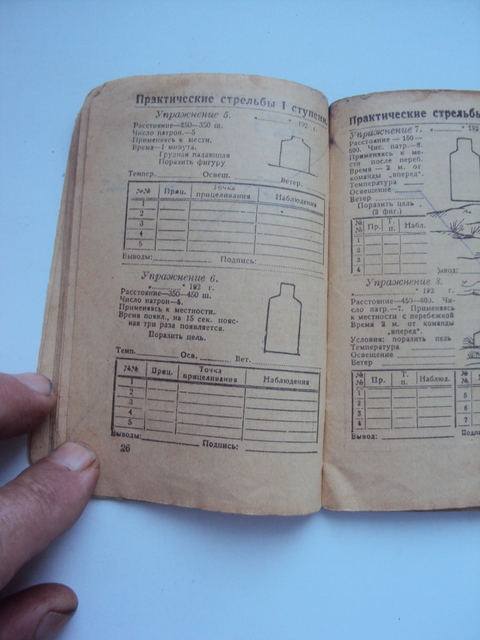 Практические стрельбы I ступени.
Упражнение 5.
" " 192 г.
Расстояние—250—350 ш.
Число патрон.—5
Применяясь к мести.
Время—1 минута.
Грудная падающая
Поразить фигуру
Темпер. Освещ. Ветер.
№№ Приц. Точка прицеливания Наблюдения
1
2
3
4
5
Выводы: Подпись:
Упражнение 6.
" " 192 г.
Расстояние—350—450 ш.
Число патрон—5.
Применяясь к местности.
Время появл. на 15 сек. пояс-
ная три раза появляется.
Поразить цель.
Темп. Осв. Вет.
№№ Приц. Точка прицеливания Наблюдения
1
2
3
4
5
Выводы: Подпись:
26
Практические стрельбы
Упражнение 7.
" " 192
Расстояние — 150—
Число пат.—8.
Применяясь к ме-
сти после переб.
Время — 2 м. от
команды „вперед".
Температура
Освещение
Ветер
Поразить цель
(2 фиг.)
№№ Пр. Т. п. Набл.
1
2
3
4
Вывод:
Упражнение 8.
" " 192 г.
Чи-
сло патр.—7. Применяясь
к местности с перебежкой
Время 2 м. от команды
„вперед".
Условия: поразить цель
Температура
Освещение
Ветер
№№ Пр. Т. п. Наблюд.
1
2
3
4
5
6
7
Вывод: